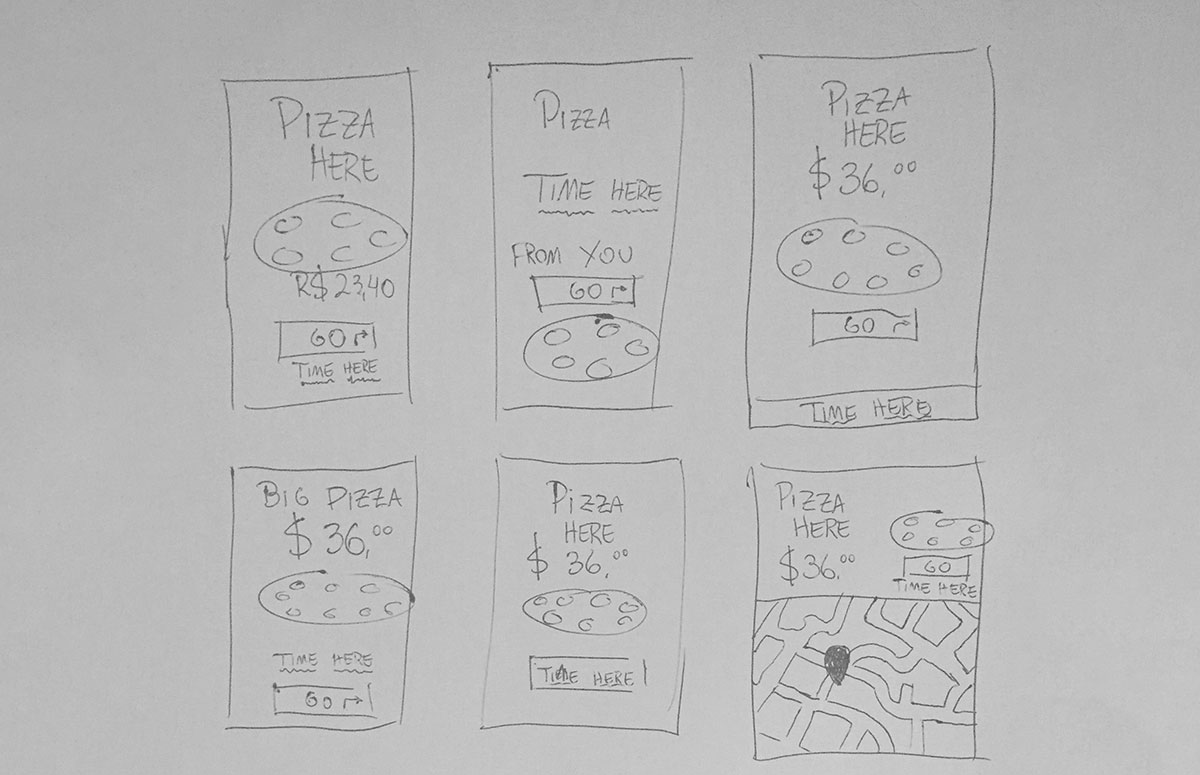 PIZZA
HERE
R$ 23,40
GO
TIME HERE
PIZZA
TIME HERE
FROM YOU
GO
PIZZA
HERE
$ 36,00
GO
TIME HERE
BIG PIZZA
$ 36,00
TIME HERE
GO
PIZZA
HERE
$ 36,00
TIME HERE
PIZZA
HERE
$36,00
GO
TIME HERE